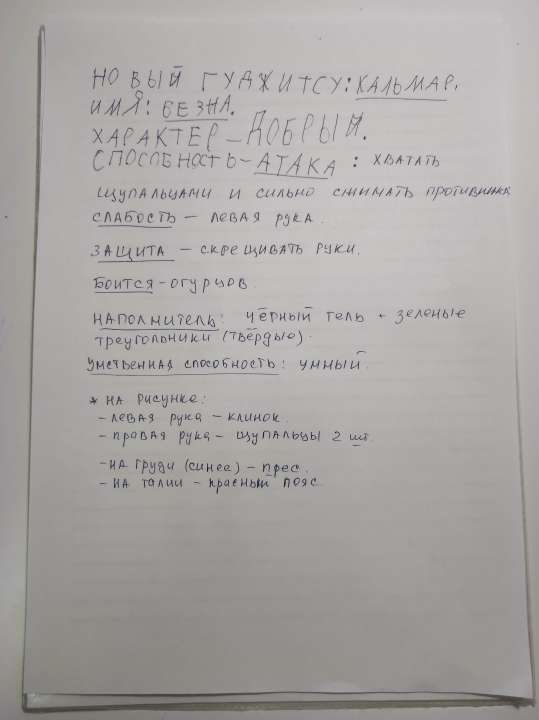 НОВЫЙ ГУДЖИТСУ: КАЛЬМАР.
ИМЯ: БЕЗНА.
ХАРАКТЕР – ДОБРЫЙ.
СПОСОБНОСТЬ – АТАКА: ХВАТАТЬ
ЩУПАЛЬЦАМИ И СИЛЬНО СЖИМАТЬ ПРОТИВНИКА
СЛАБОСТЬ – ЛЕВАЯ РУКА.
ЗАЩИТА – СКРЕЩИВАТЬ РУКИ.
БОИТСЯ – ОГУРЦОВ.
НАПОЛНИТЕЛЬ: ЧЁРНЫЙ ГЕЛЬ + ЗЕЛЕНЫЕ
ТРЕУГОЛЬНИКИ (ТВЁРДЫЕ).
УМСТВЕННАЯ СПОСОБНОСТЬ: УМНЫЙ.
* НА РИСУНКЕ:
– ЛЕВАЯ РУКА – КЛИНОК.
– ПРАВАЯ РУКА – ЩУПАЛЬЦЫ 2 шт.
– НА ГРУДИ (СИНЕЕ) – ПРЕС.
– НА ТАЛИИ – КРАСНЫЙ ПОЯС.